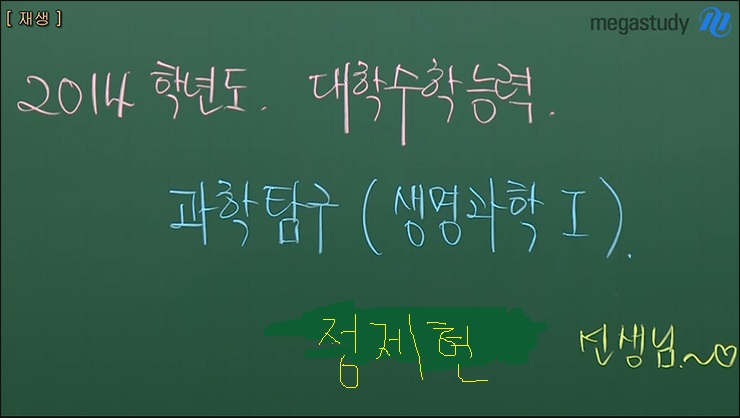 [ 재생 ]
megastudy
2014 학년도. 대학수학능력.
과학탐구 (생명과학 I).
정제헌 선생님.~♡